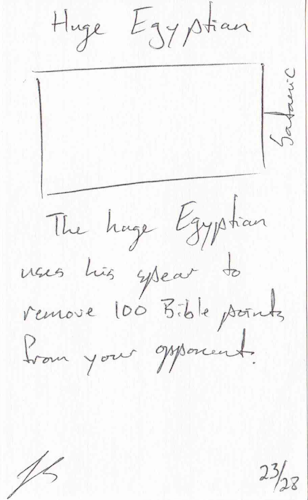 Huge Egyptian
Satanic
The huge Egyptian
uses his spear to
remove 100 Bible points
from your opponent.
23/28